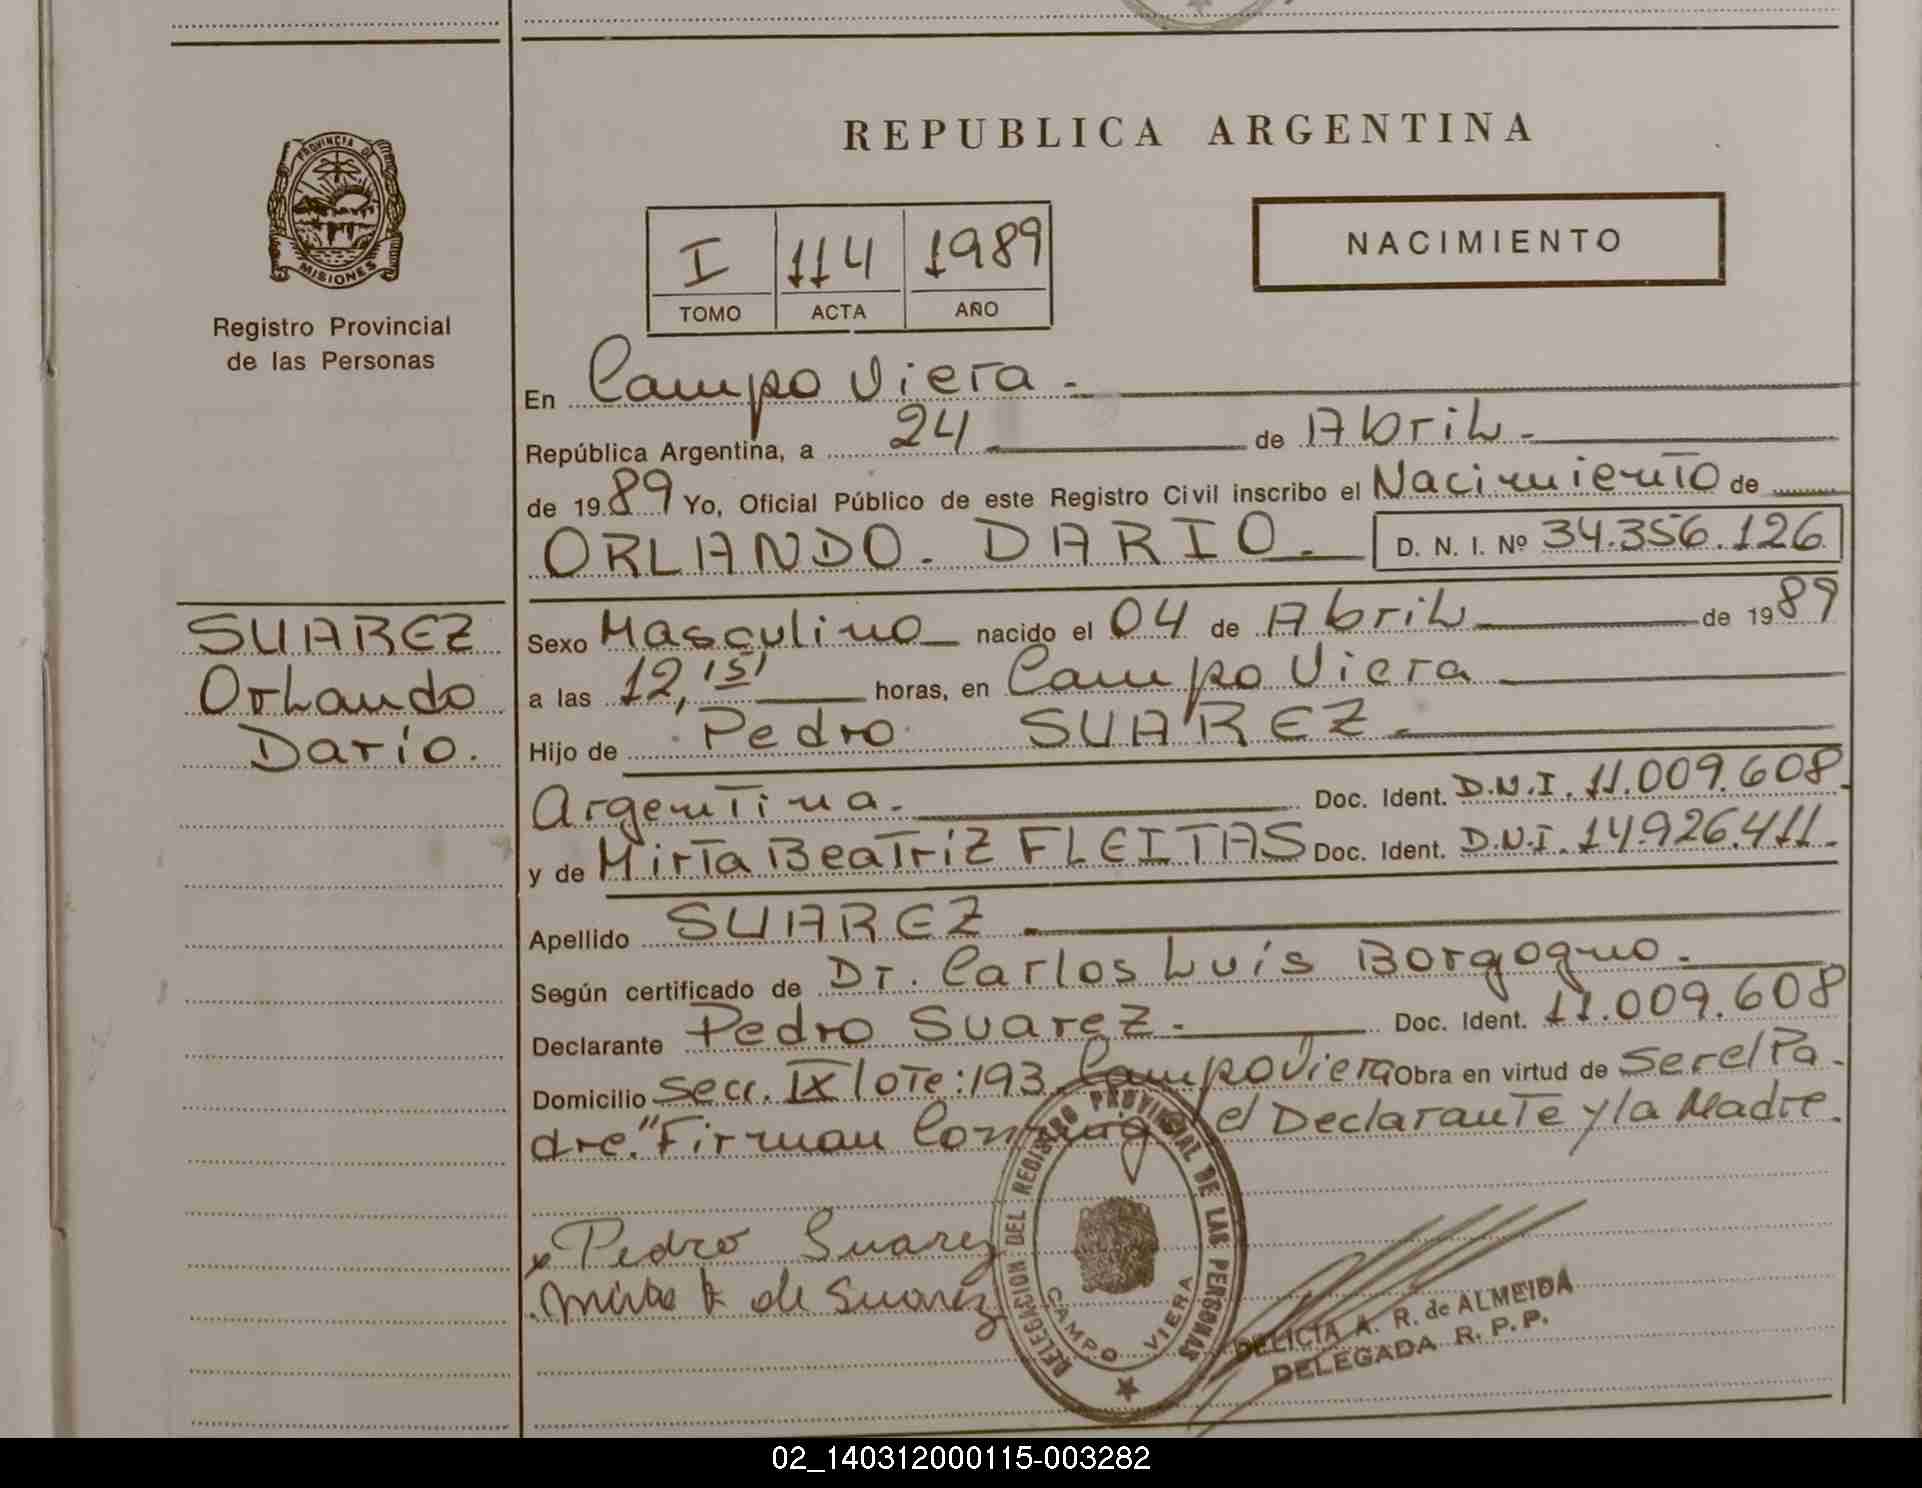 REPUBLICA ARGENTINA
PROVINCIA DE
MISIONES
Registro Provincial
de las Personas
I 114 1989
TOMO ACTA AÑO
NACIMIENTO
En Campo Viera.-
República Argentina, a 24 de Abril.-
de 1989 Yo, Oficial Público de este Registro Civil inscribo el Nacimiento de
ORLANDO. DARIO. D. N. I. Nº 34.356.126
SUAREZ
Orlando
Dario.
Sexo Masculino nacido el 04 de Abril de 1989
a las 12,15' horas, en Campo Viera
Hijo de Pedro SUAREZ.
Argentina. Doc. Ident. D.N.I. 11.009.608.
y de Mirta Beatriz FLEITAS Doc. Ident. D.N.I. 14.926.411.
Apellido SUAREZ
Según certificado de Dr. Carlos Luís Borgogno.
Declarante Pedro Suarez.- Doc. Ident. 11.009.608
Domicilio Secc. IX lote:193 Campo Viera Obra en virtud de Ser el Pa
dre." Firman Conmigo el Declarante y la Madre.
x Pedro Suarez
Mirta F de Suarez
DELEGACION DEL REGISTRO PROVINCIAL DE LAS PERSONAS
CAMPO VIERA
DELICIA A. R. de ALMEIDA
DELEGADA R. P. P.
02_140312000115-003282